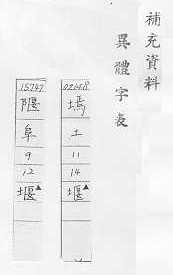 補充資料
異體字表
02668
塢
土
11
14
堰▲
15747
隁
阜
9
12
堰▲